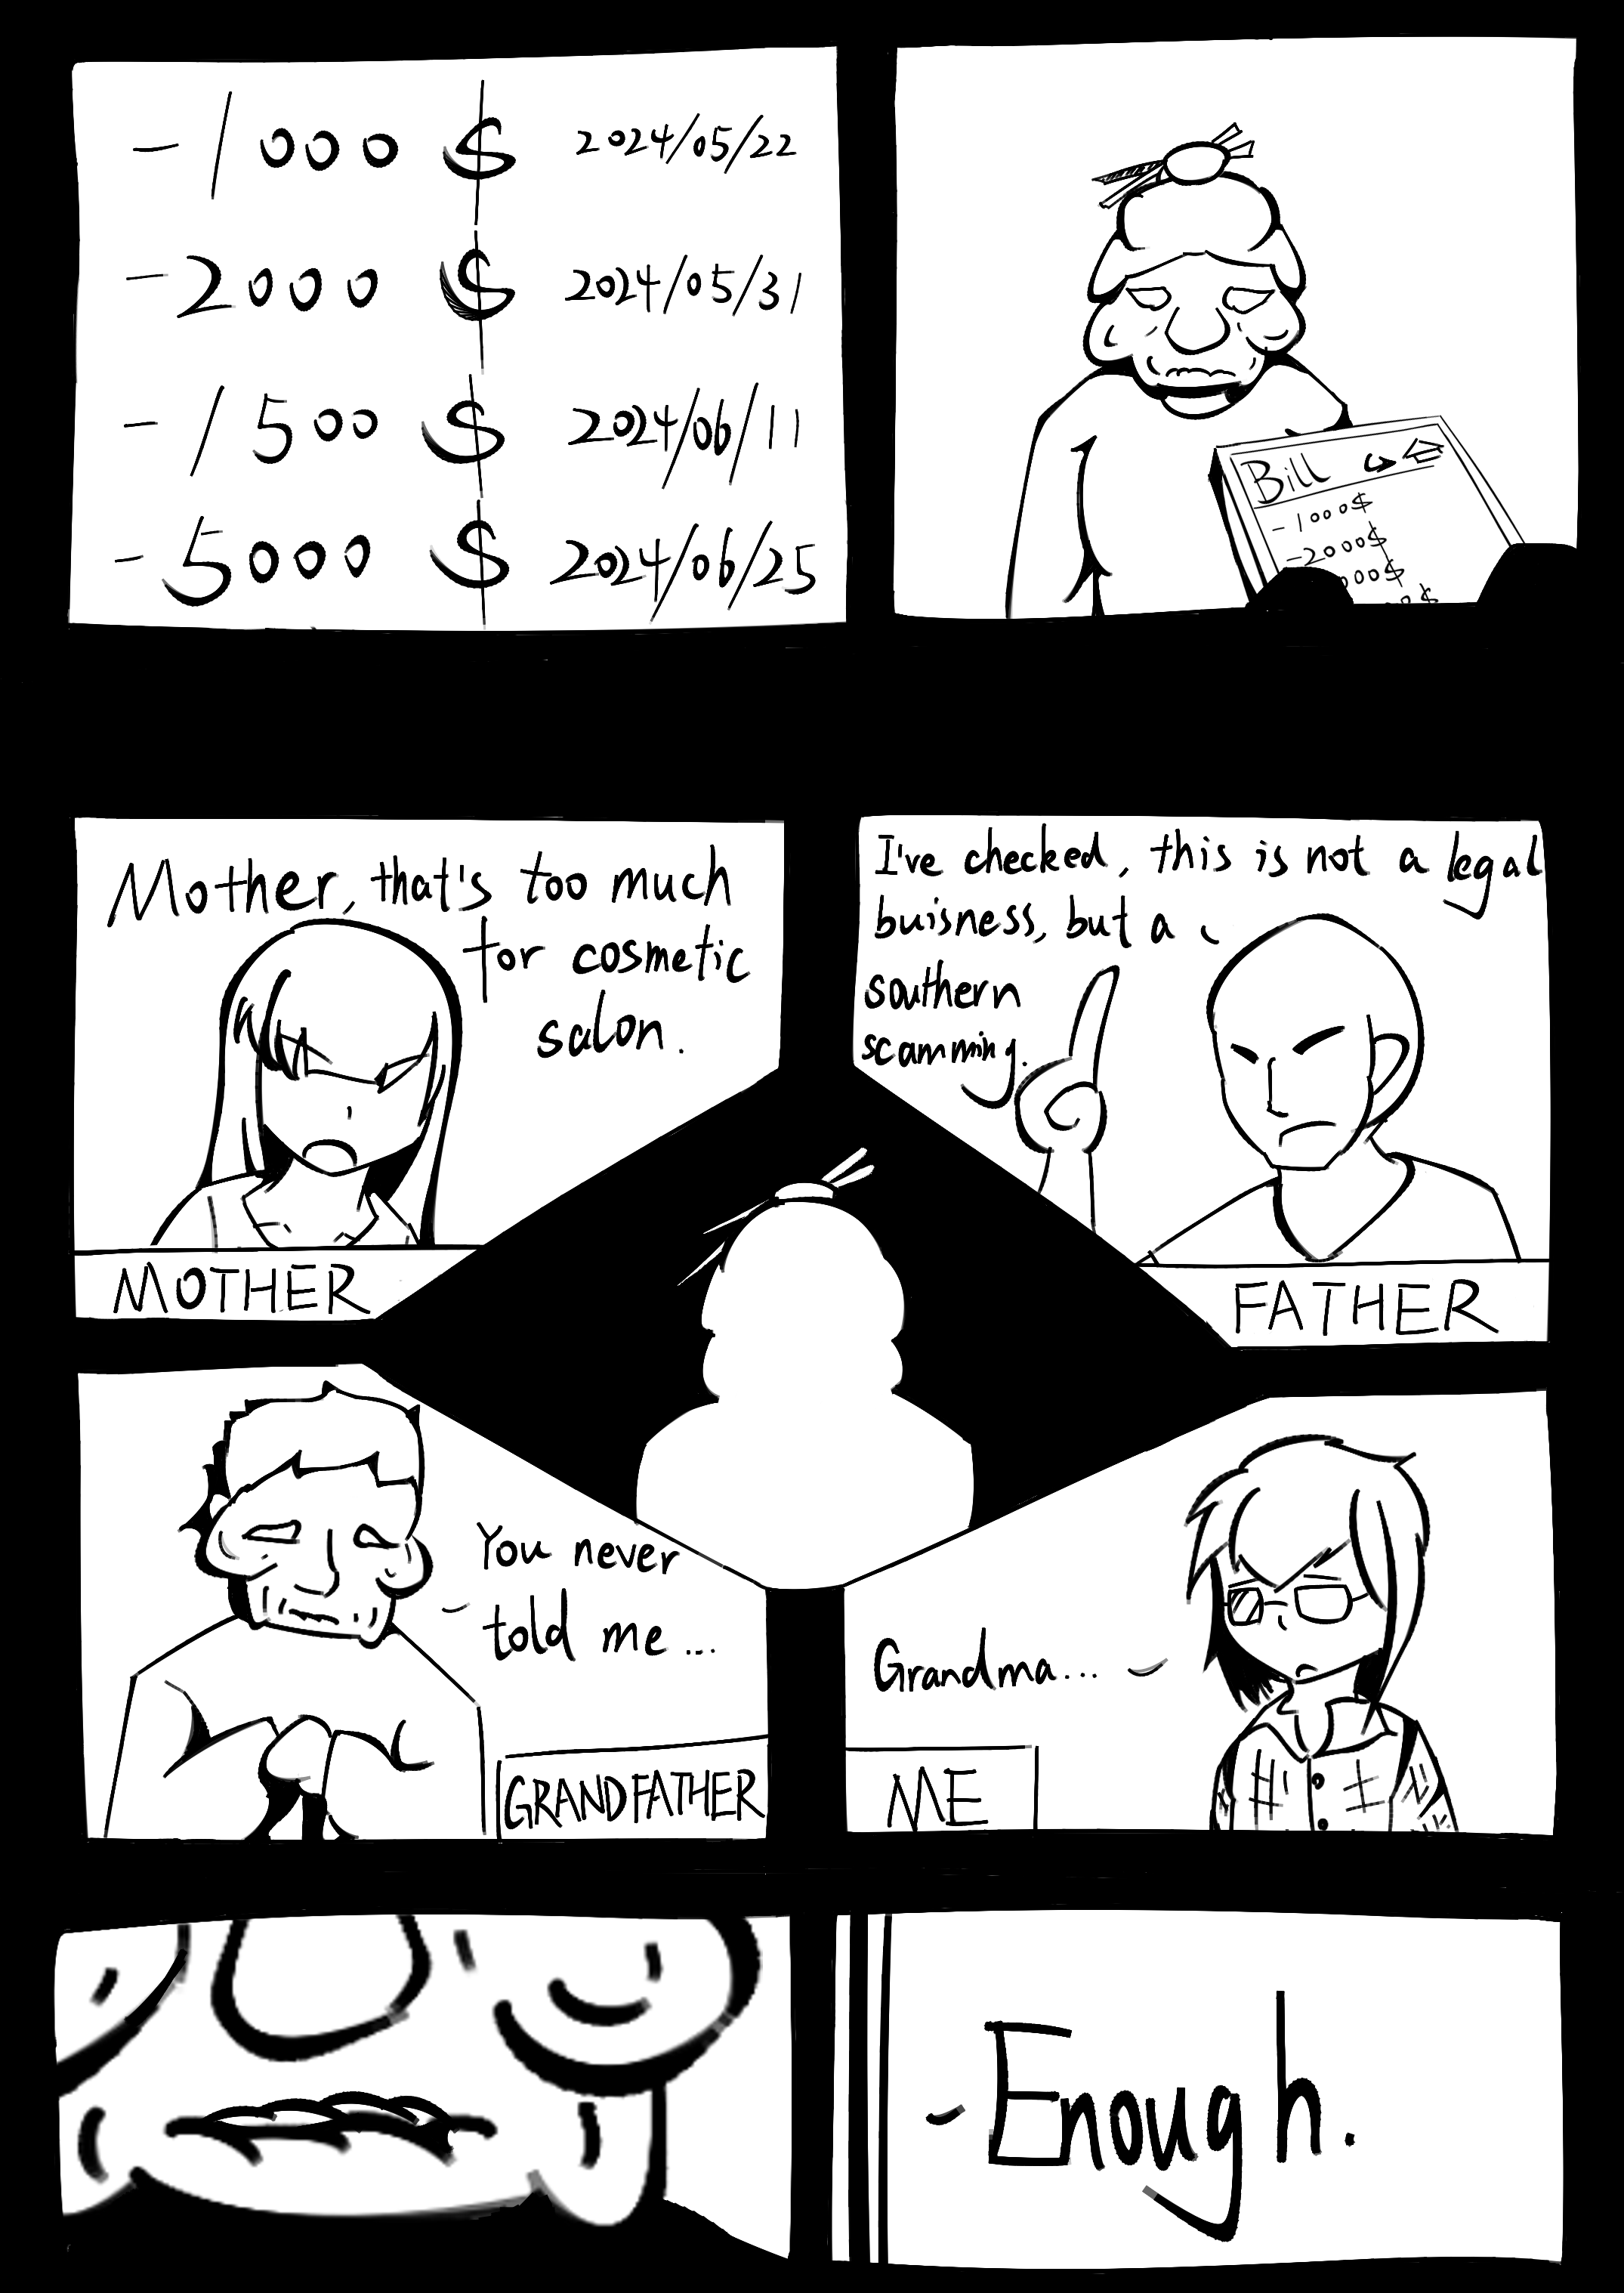 -1000 $ 2024/05/22
-2000 $ 2024/05/31
-1500 $ 2024/06/11
-5000 $ 2024/06/25
Bill
-1000$
-2000$
000$
00$
Mother, that's too much
for cosmetic
salon.
MOTHER
I've checked, this is not a legal
buisness, but a
southern
scamming.
FATHER
You never
told me...
GRANDFATHER
Grandma...
ME
-Enough.